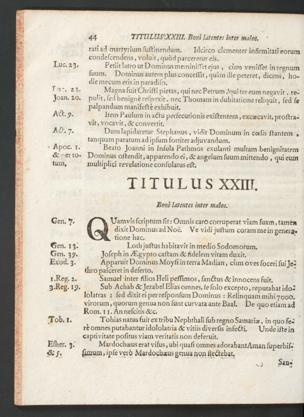 44 TITULUS XXIII. Boni latentes inter malos.
rati ad martyrium sustinendum. Idcirco clementer infirmitati eorum
condescendens, voluit, quòd parceretur eis.
Luc. 23. Petiit latro ut Dominus meminisset ejus, cùm venisset in regnum
suum. Dominus autem plus concessit, quàm ille peteret, dicens, ho-
die mecum eris in paradiso.
Luc. 22. Magna fuit Christi pietas, qui nec Petrum pluries ter eum negavit, re-
Joan. 20. pulit, sed benignè respexit, nec Thomam in dubitatione reliquit, sed se
palpandum manifestè exhibuit.
Act. 9. Item Paulum in actu persecutionis existentem, excæcavit, prostra-
vit, vocavit, & convertit.
Act. 7. Dum lapidaretur Stephanus, vidit Dominum in cœlis stantem,
tanquam paratum ad ipsum fortiter adjuvandum.
Apoc. 1. Beato Joanni in Insula Pathmos exulanti multum benignitatem
& per to- Dominus ostendit, apparendo ei, & angelum suum mittendo, qui eum
tum. multiplici revelatione consolatus est.
TITULUS XXIII.
Boni latentes inter malos.
Gen. 7. QUamvis scriptum sit: Omnis caro corruperat viam suam, tamen
dixit Dominus ad Noë. Ve vidi justum coram me in genera-
tione hac.
Gen. 13. Loth justus habitavit in medio Sodomorum.
Gen. 39. Joseph in Ægypto castam & fidelem vitam duxit.
Exod. 3. Apparuit Dominus Moysi in terra Madian, cùm oves soceri sui Je-
thro pasceret in deserto.
1. Reg. 2. Samuel inter filios Heli pessimos, sanctus & innocens fuit.
3. Reg. 19. Sub Achab & Jezabel Elias omnes, se solo excepto, reputabat ido-
lolatras: sed dixit ei per responsum Dominus: Relinquam mihi 7000.
virorum, quorum genua non sunt curvata ante Baal. De quo etiam ad
Rom. 11. An nescitis &c.
Tob. 1. Tobias natus fuit ex tribu Nephthali sub regno Samariæ, in quo fe-
rè omnes putabantur idololatria & vitiis diversis infecti. Unde iste in
captivitate positus viam veritatis non deseruit.
Esther. 3. Mardochæus erat visus, ubi quasi omnes adorabant Aman superbis-
& 5. simum, ipse verò Mardochæus genua non flectebat.